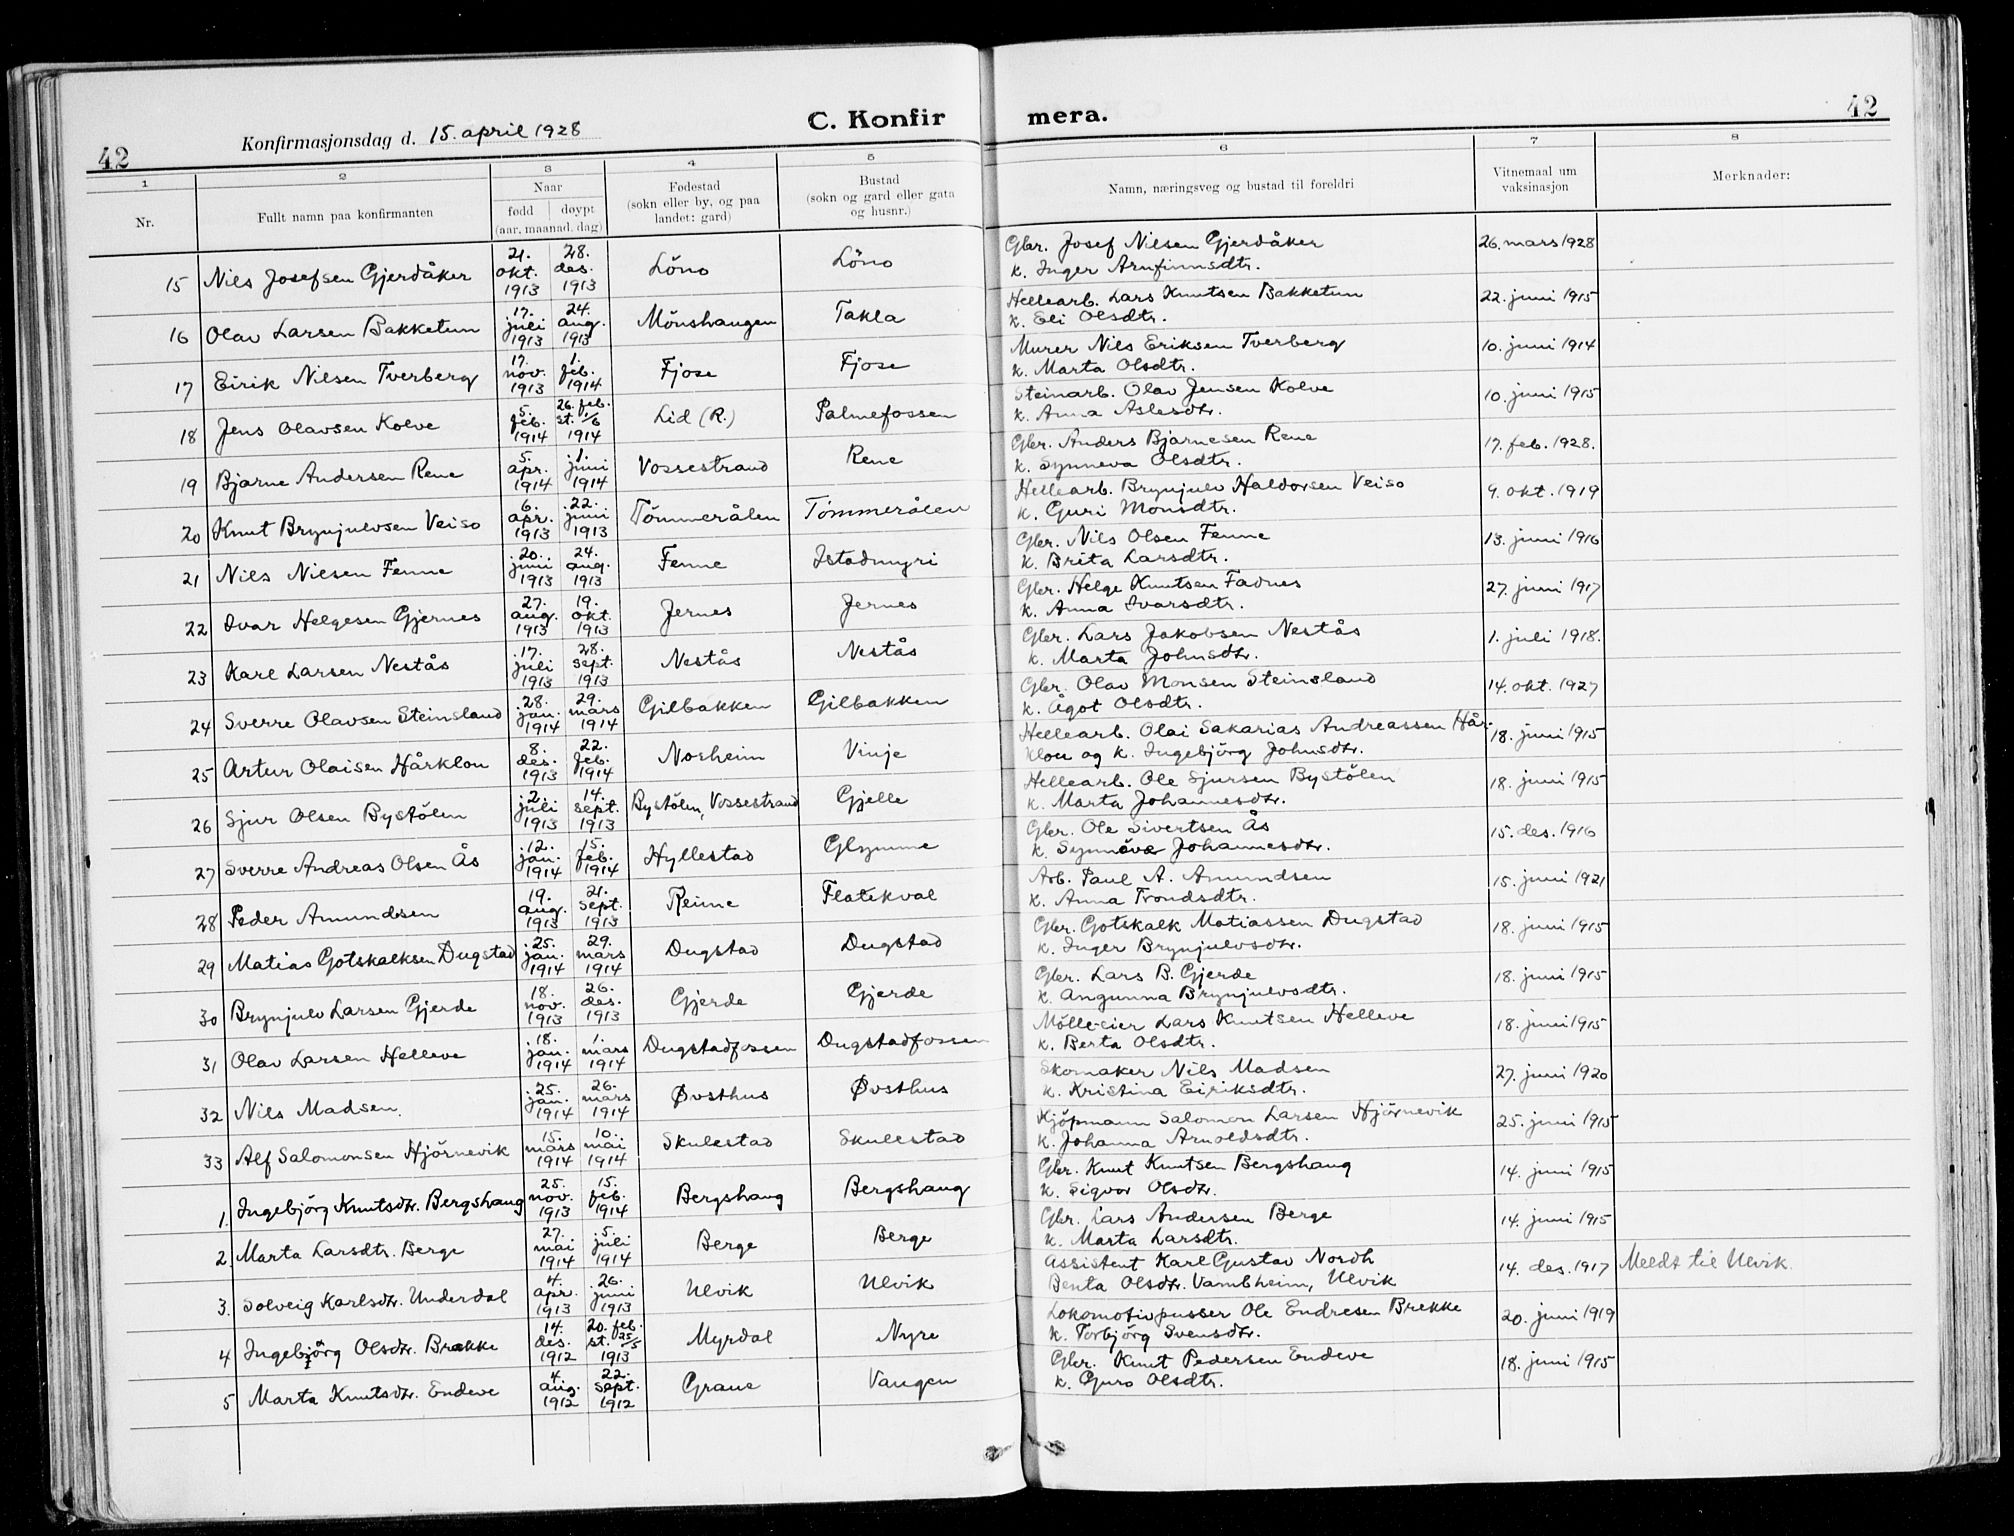 42
Konfirmasjonsdag d. 15. april 1928
C. Konfir
mera.
42
1 2 3 4 5 6 7 8
Nr.
Fullt namn paa konfirmanten
Naar
fødd døypt
(aar, maanad, dag)
Fødestad
(sokn eller by, og paa
landet: gard)
Bustad
(sokn og gard eller gata
og husnr.)
Namn, næringsveg og bustad til foreldri
Vitnemaal um
vaksinasjon
Merknader:
15 Nils Josefsen Gjerdåker 21. okt. 1913 28. des. 1913 Löno Löno Gbr. Josef Nilsen Gjerdåker k. Inger Arnfinnsdtr. 26. mars 1928
16 Olav Larsen Bakketun 17. juli 1913 24. aug. 1913 Mönshaugen Takla Hellearb. Lars Knutsen Bakketun k. Eli Olsdtr. 22. juni 1915
17 Eirik Nilsen Tverberg 17. nov. 1913 1. feb. 1914 Fjose Fjose Murer Nils Eriksen Tverberg k. Marta Olsdtr. 10. juni 1914
18 Jens Olavsen Kolve 5. feb. 1914 26. feb. st. 1/6 1914 Lid (R.) Palmefossen Steinarb. Olav Jensen Kolve k. Anna Aslesdtr. 10. juni 1915
19 Bjarne Andersen Rene 5. apr. 1914 1. juni 1914 Vossestrand Rene Gbr. Anders Bjarnesen Rene k. Synneva Olsdtr. 17. feb. 1928.
20 Knut Brynjulvsen Veiso 6. apr. 1913 22. juni 1913 Tömmerålen Tömmerålen Hellearb. Brynjulv Haldorsen Veiso k. Guri Monsdtr. 9. okt. 1919
21 Nils Nilsen Fenne 20. juni 1913 24. aug. 1913 Fenne Istadmyri Gbr. Nils Olsen Fenne k. Brita Larsdtr. 13. juni 1916
22 Ivar Helgesen Gjernes 27. aug. 1913 19. okt. 1913 Jernes Jernes Gbr. Helge Knutsen Fadnes k. Anna Ivarsdtr. 27. juni 1917
23 Karl Larsen Nestås 17. juli 1913 28. sept. 1913 Nestås Nestås Gbr. Lars Jakobsen Nestås k. Marta Johnsdtr. 1. juli 1918.
24 Sverre Olavsen Steinsland 28. jan. 1914 29. mars 1914 Gilbakken Gilbakken Gbr. Olav Monsen Steinsland k. Ågot Olsdtr. 14. okt. 1927
25 Artur Olaisen Hårklou 8. des. 1913 22. feb. 1914 Norheim Vinje Hellearb. Olai Sakarias Andreassen Hår- klou og k. Ingebjörg Johnsdtr. 18. juni 1915
26 Sjur Olsen Bystölen 2. juli 1913 14. sept. 1913 Bystölen, Vossestrand Gjelle Hellearb. Ole Sjursen Bystölen k. Marta Johannesdtr. 18. juni 1915
27 Sverre Andreas Olsen Ås 12. jan. 1914 15. feb. 1914 Hyllestad Glymme Gbr. Ole Sivertsen Ås k. Synnöve Johannesdtr. 15. des. 1916
28 Peder Amundsen 19. aug. 1913 21. sept. 1913 Reime Flatekval Arb. Paul A. Amundsen k. Anna Trondsdtr. 15. juni 1921
29 Matias Gotskalksen Dugstad 25. jan. 1914 29. mars 1914 Dugstad Dugstad Gbr. Gotskalk Matiassen Dugstad k. Inger Brynjulvsdtr. 18. juni 1915
30 Brynjulv Larsen Gjerde 18. nov. 1913 26. des. 1913 Gjerde Gjerde Gbr. Lars B. Gjerde k. Angunna Brynjulvsdtr. 18. juni 1915
31 Olav Larsen Helleve 18. jan. 1914 1. mars 1914 Dugstadfossen Dugstadfossen Mölleeier Lars Knutsen Helleve k. Berta Olsdtr. 18. juni 1915
32 Nils Madsen. 25. jan. 1914 26. mars 1914 Øvsthus Øvsthus Skomaker Nils Madsen k. Kristina Eiriksdtr. 27. juni 1920
33 Alf Salomonsen Hjörnevik 15. mars 1914 10. mai 1914 Skulestad Skulestad Kjöpmann Salomon Larsen Hjörnevik k. Johanna Arnoldsdtr. 25. juni 1915
1. Ingebjörg Knutsdtr. Bergshaug 25. nov. 1913 15. feb. 1914 Bergshaug Bergshaug Gbr. Knut Knutsen Bergshaug k. Sigvor Olsdtr. 14. juni 1915
2. Marta Larsdtr. Berge 27. mai 1914 5. juli 1914 Berge Berge Gbr. Lars Andersen Berge k. Marta Larsdtr. 14. juni 1915
3. Solveig Karlsdtr. Underdal 4. apr. 1913 26. juni 1913 Ulvik Ulvik Assistent Karl Gustav Nordh Benta Olsdtr. Vambheim, Ulvik 14. des. 1917 Meldt til Ulvik.
4 Ingebjörg Olsdtr. Brekke 14. des. 1912 20. feb. st. 25/5 1913 Myrdal Nyre Lokomotivpusser Ole Endresen Brekke k. Torbjörg Svensdtr. 20. juni 1919
5 Marta Knutsdtr. Endeve 4. aug. 1912 22. sept. 1912 Graue Vangen Gbr. Knut Pedersen Endeve k. Guro Olsdtr. 18. juni 1915